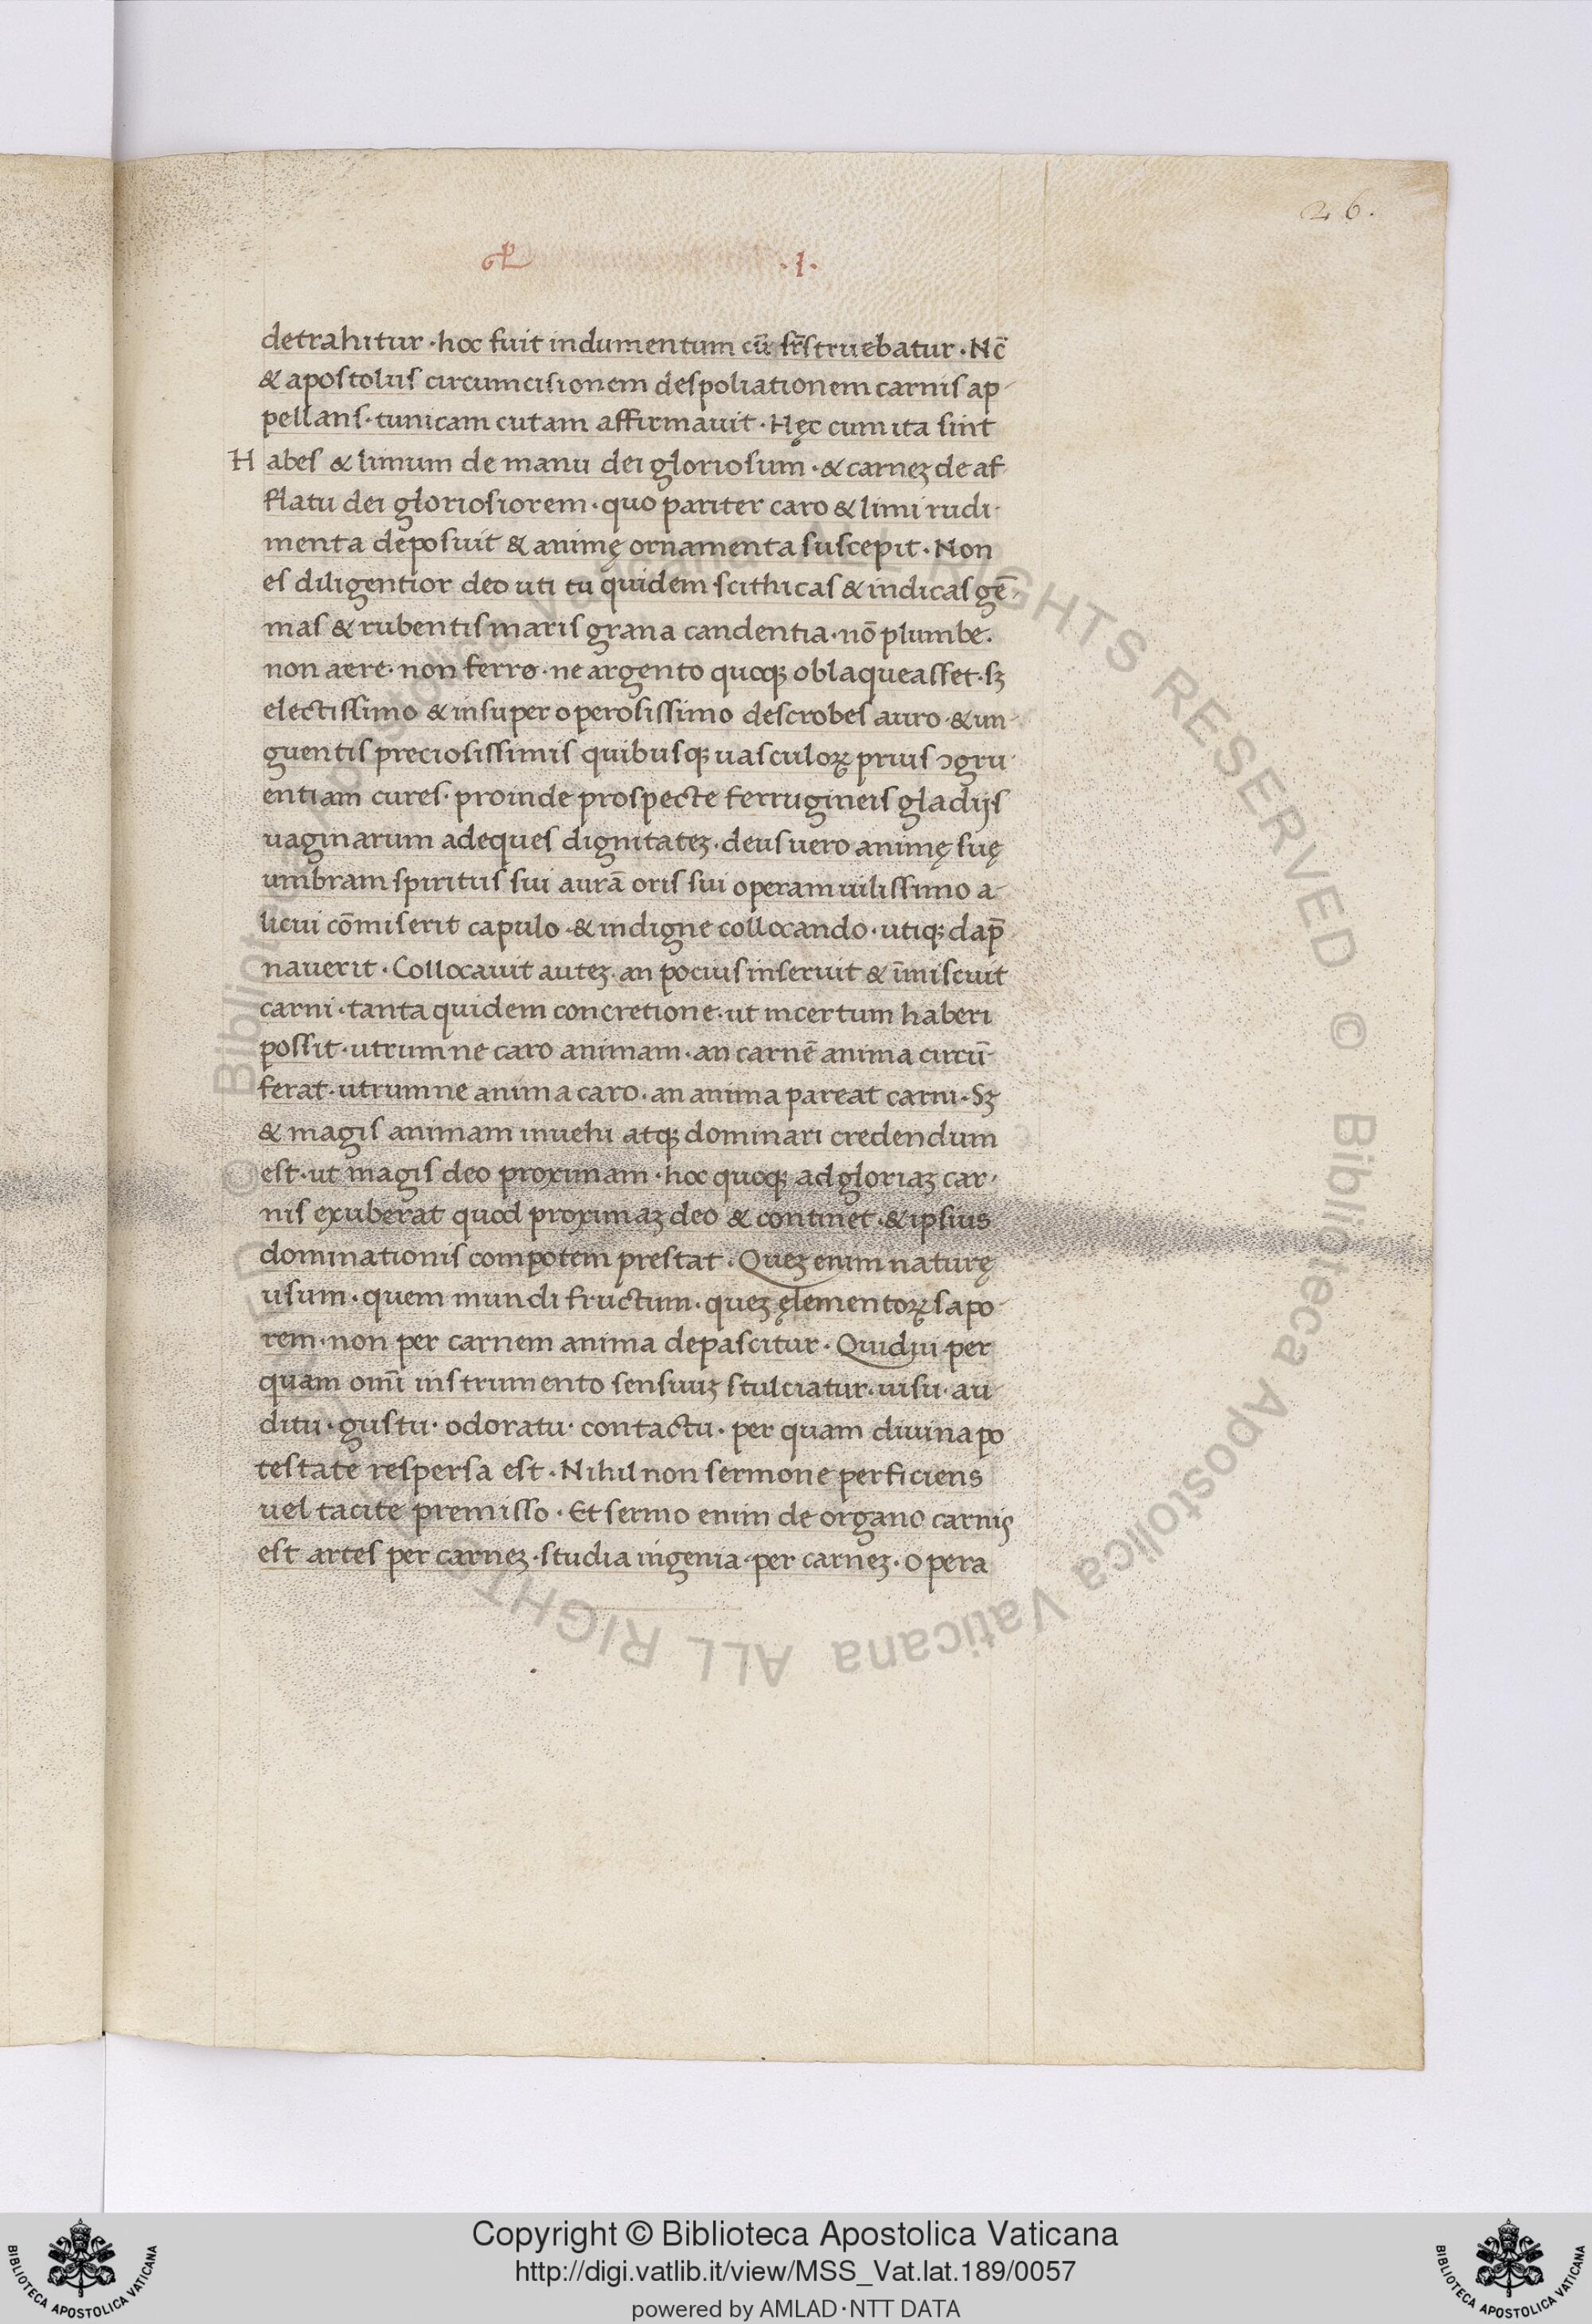 26.
.I.
detrahitur · hoc fuit indumentum cū sr̄struebatur · Nc̄
& apostolus circumcisionem despoliationem carnis ap-
pellans · tunicam cutam affirmauit · Hęc cum ita sint
Habes & limum de manu dei gloriosum · & carneꝫ de af-
flatu dei gloriosiorem · quo pariter caro & limi rudi-
menta deposuit & animę ornamenta suscepit · Non
es diligentior deo uti tu quidem scithicas & indicas gē-
mas & rubentis maris grana candentia · nō plumbe ·
non aere · non ferro · ne argento quoqꝫ oblaqueasset · sꝫ
electissimo & insuper operosissimo descrobes auro · & un-
guentis preciosissimis quibusqꝫ uasculoꝝ prius ꝯgru-
entiam cures · proinde prospecte ferrugineis gladijs
uaginarum adeques dignitateꝫ · deus uero animę suę
umbram spiritus sui aurā oris sui operam uilissimo a-
licui cōmiserit capulo · & indigne collocando · utiqꝫ dap̄-
nauerit · Collocauit auteꝫ · an pocius inseruit & īmiscuit
carni · tanta quidem concretione · ut incertum haberi
possit · utrumne caro animam · an carnē anima circū-
ferat · utrumne anima caro · an anima pareat carni · Sꝫ
& magis animam inuehi atqꝫ dominari credendum
est · ut magis deo proximam · hoc quoqꝫ ad gloriaꝫ car-
nis exuberat quod proximaꝫ deo & continet · & ipsius
dominationis compotem prestat · Queꝫ enim naturę
usum · quem mundi fructum · queꝫ ęlementoꝝ sapo-
rem · non per carnem anima depascitur · Quidni per
quam omī instrumento sensuuꝫ stulciatur · uisu · au-
ditu · gustu · odoratu · contactu · per quam diuina po
testate respersa est · Nihil non sermone perficiens
uel tacite premisso · Et sermo enim de organo carnis
est artes per carneꝫ · studia ingenia · per carneꝫ · opera
Copyright © Biblioteca Apostolica Vaticana
http://digi.vatlib.it/view/MSS_Vat.lat.189/0057
powered by AMLAD·NTT DATA
BIBLIOTECA APOSTOLICA VATICANA
BIBLIOTECA APOSTOLICA VATICANA
© Biblioteca Apostolica Vaticana ALL RIGHTS RESERVED © Biblioteca Apostolica Vaticana ALL RIGHTS RESERVED